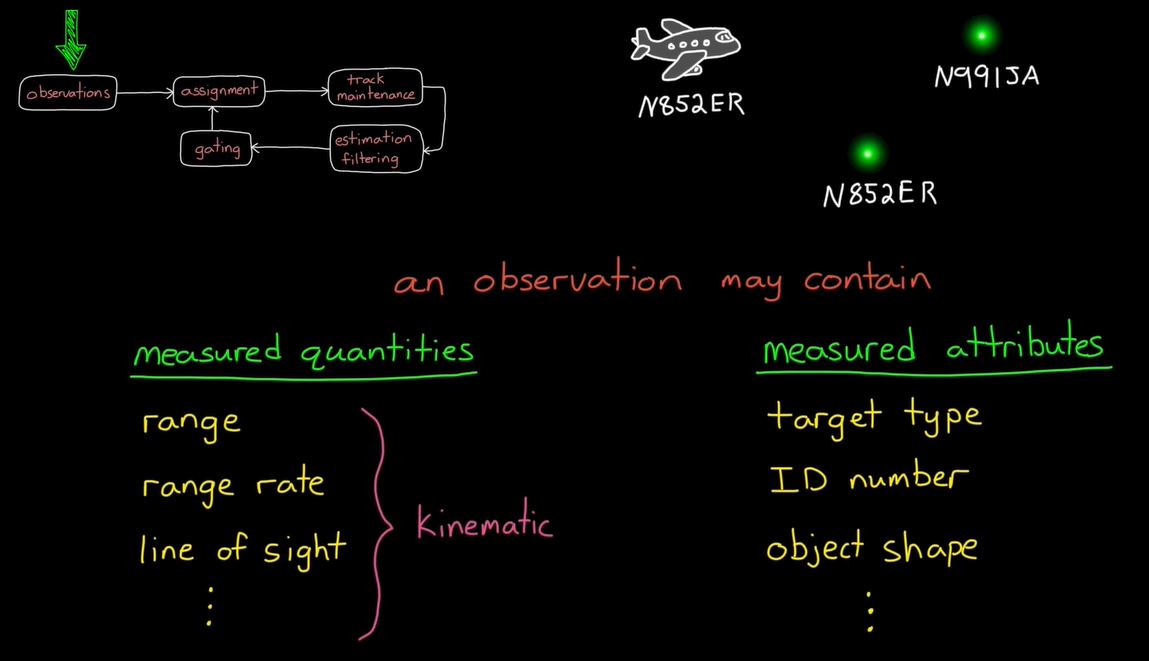 observations
assignment
track
maintenance
gating
estimation
filtering
N852ER
N991JA
N852ER
an observation may contain
measured quantities
range
range rate
line of sight
kinematic
measured attributes
target type
ID number
object shape